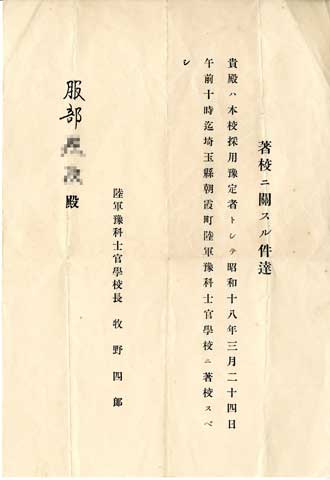 著校ニ關スル件達
貴殿ハ本校採用豫定者トシテ昭和十八年三月二十四日
午前十時迄埼玉縣朝霞町陸軍豫科士官學校ニ著校スベ
シ
陸軍豫科士官學校長 牧野四郎
服部 殿